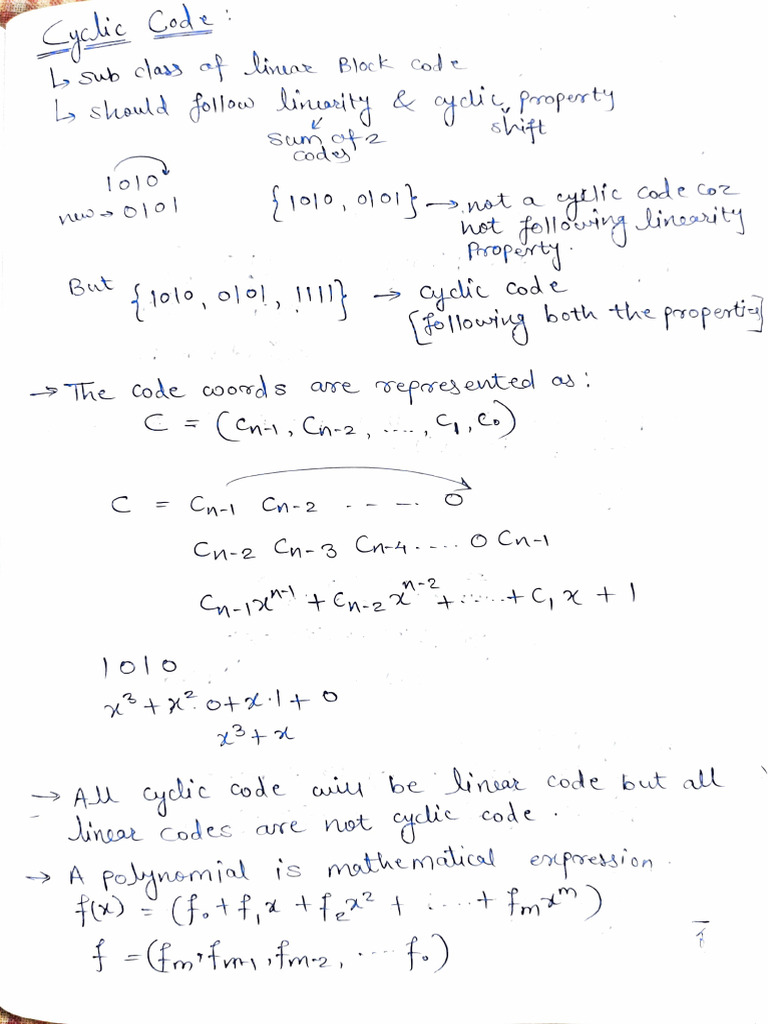 Cyclic Code:
↳ sub class of linear Block code
↳ should follow linearity & cyclic property
shift
sum of 2
codes
1010
new → 0101
{1010, 0101} → not a cyclic code coz
not following linearity
Property.
But {1010, 0101, 1111} → cyclic code
[following both the properties]
→ The code words are represented as:
C = (Cn-1, Cn-2, ....., C1, C0)
C = Cn-1 Cn-2 - - - . 0
Cn-2 Cn-3 Cn-4 ..... 0 Cn-1
Cn-1x^n-1 + Cn-2x^n-2 + ...... + C1x + 1
1010
x³ + x².0 + x.1 + 0
x³ + x
→ All cyclic code will be linear code but all
linear codes are not cyclic code.
→ A polynomial is mathematical expression.
f(x) = (f0 + f1x + f2x² + ..... + fmx^m)
f = (fm, fm-1, fm-2, .... f0)